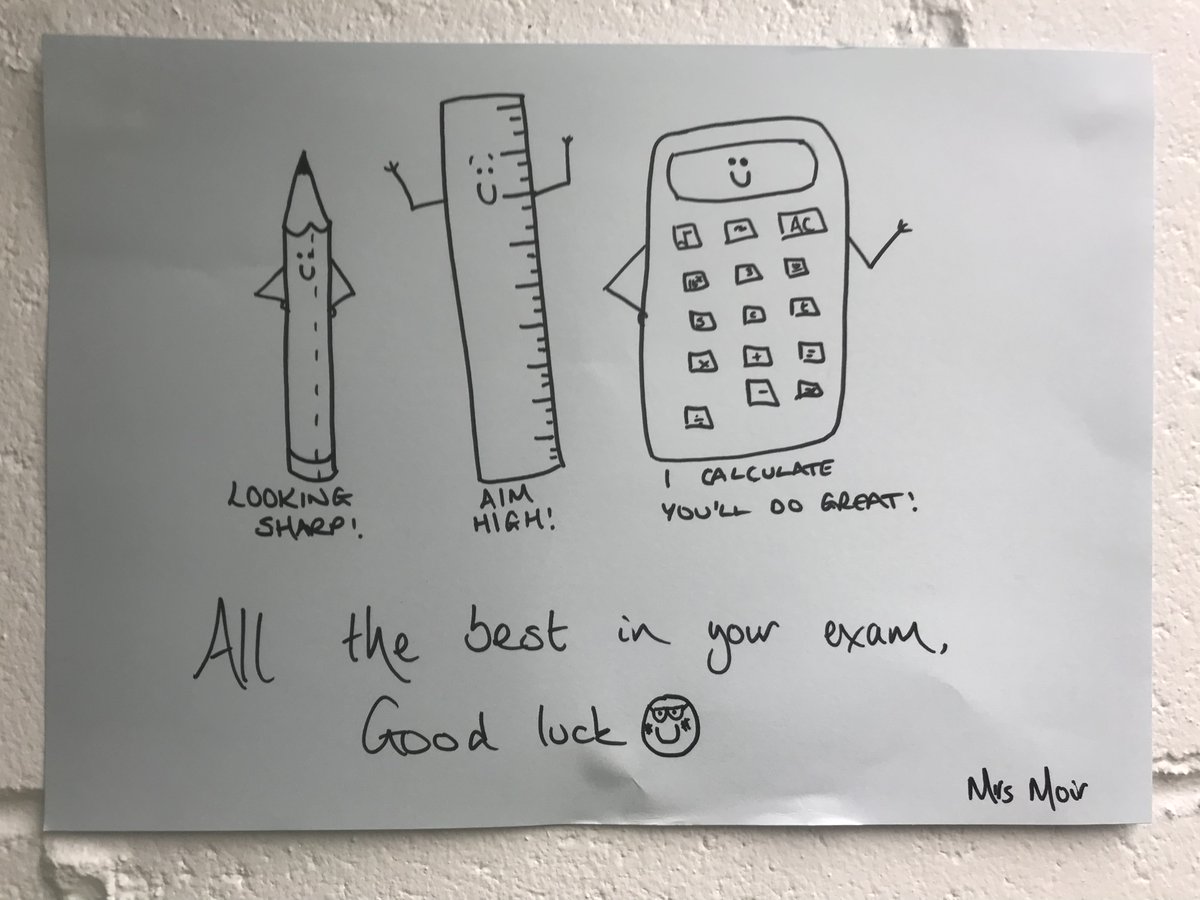 AC
LOOKING
SHARP!
AIM
HIGH!
I CALCULATE
YOU'LL DO GREAT!
All the best in your exam,
Good luck
Mrs Moir